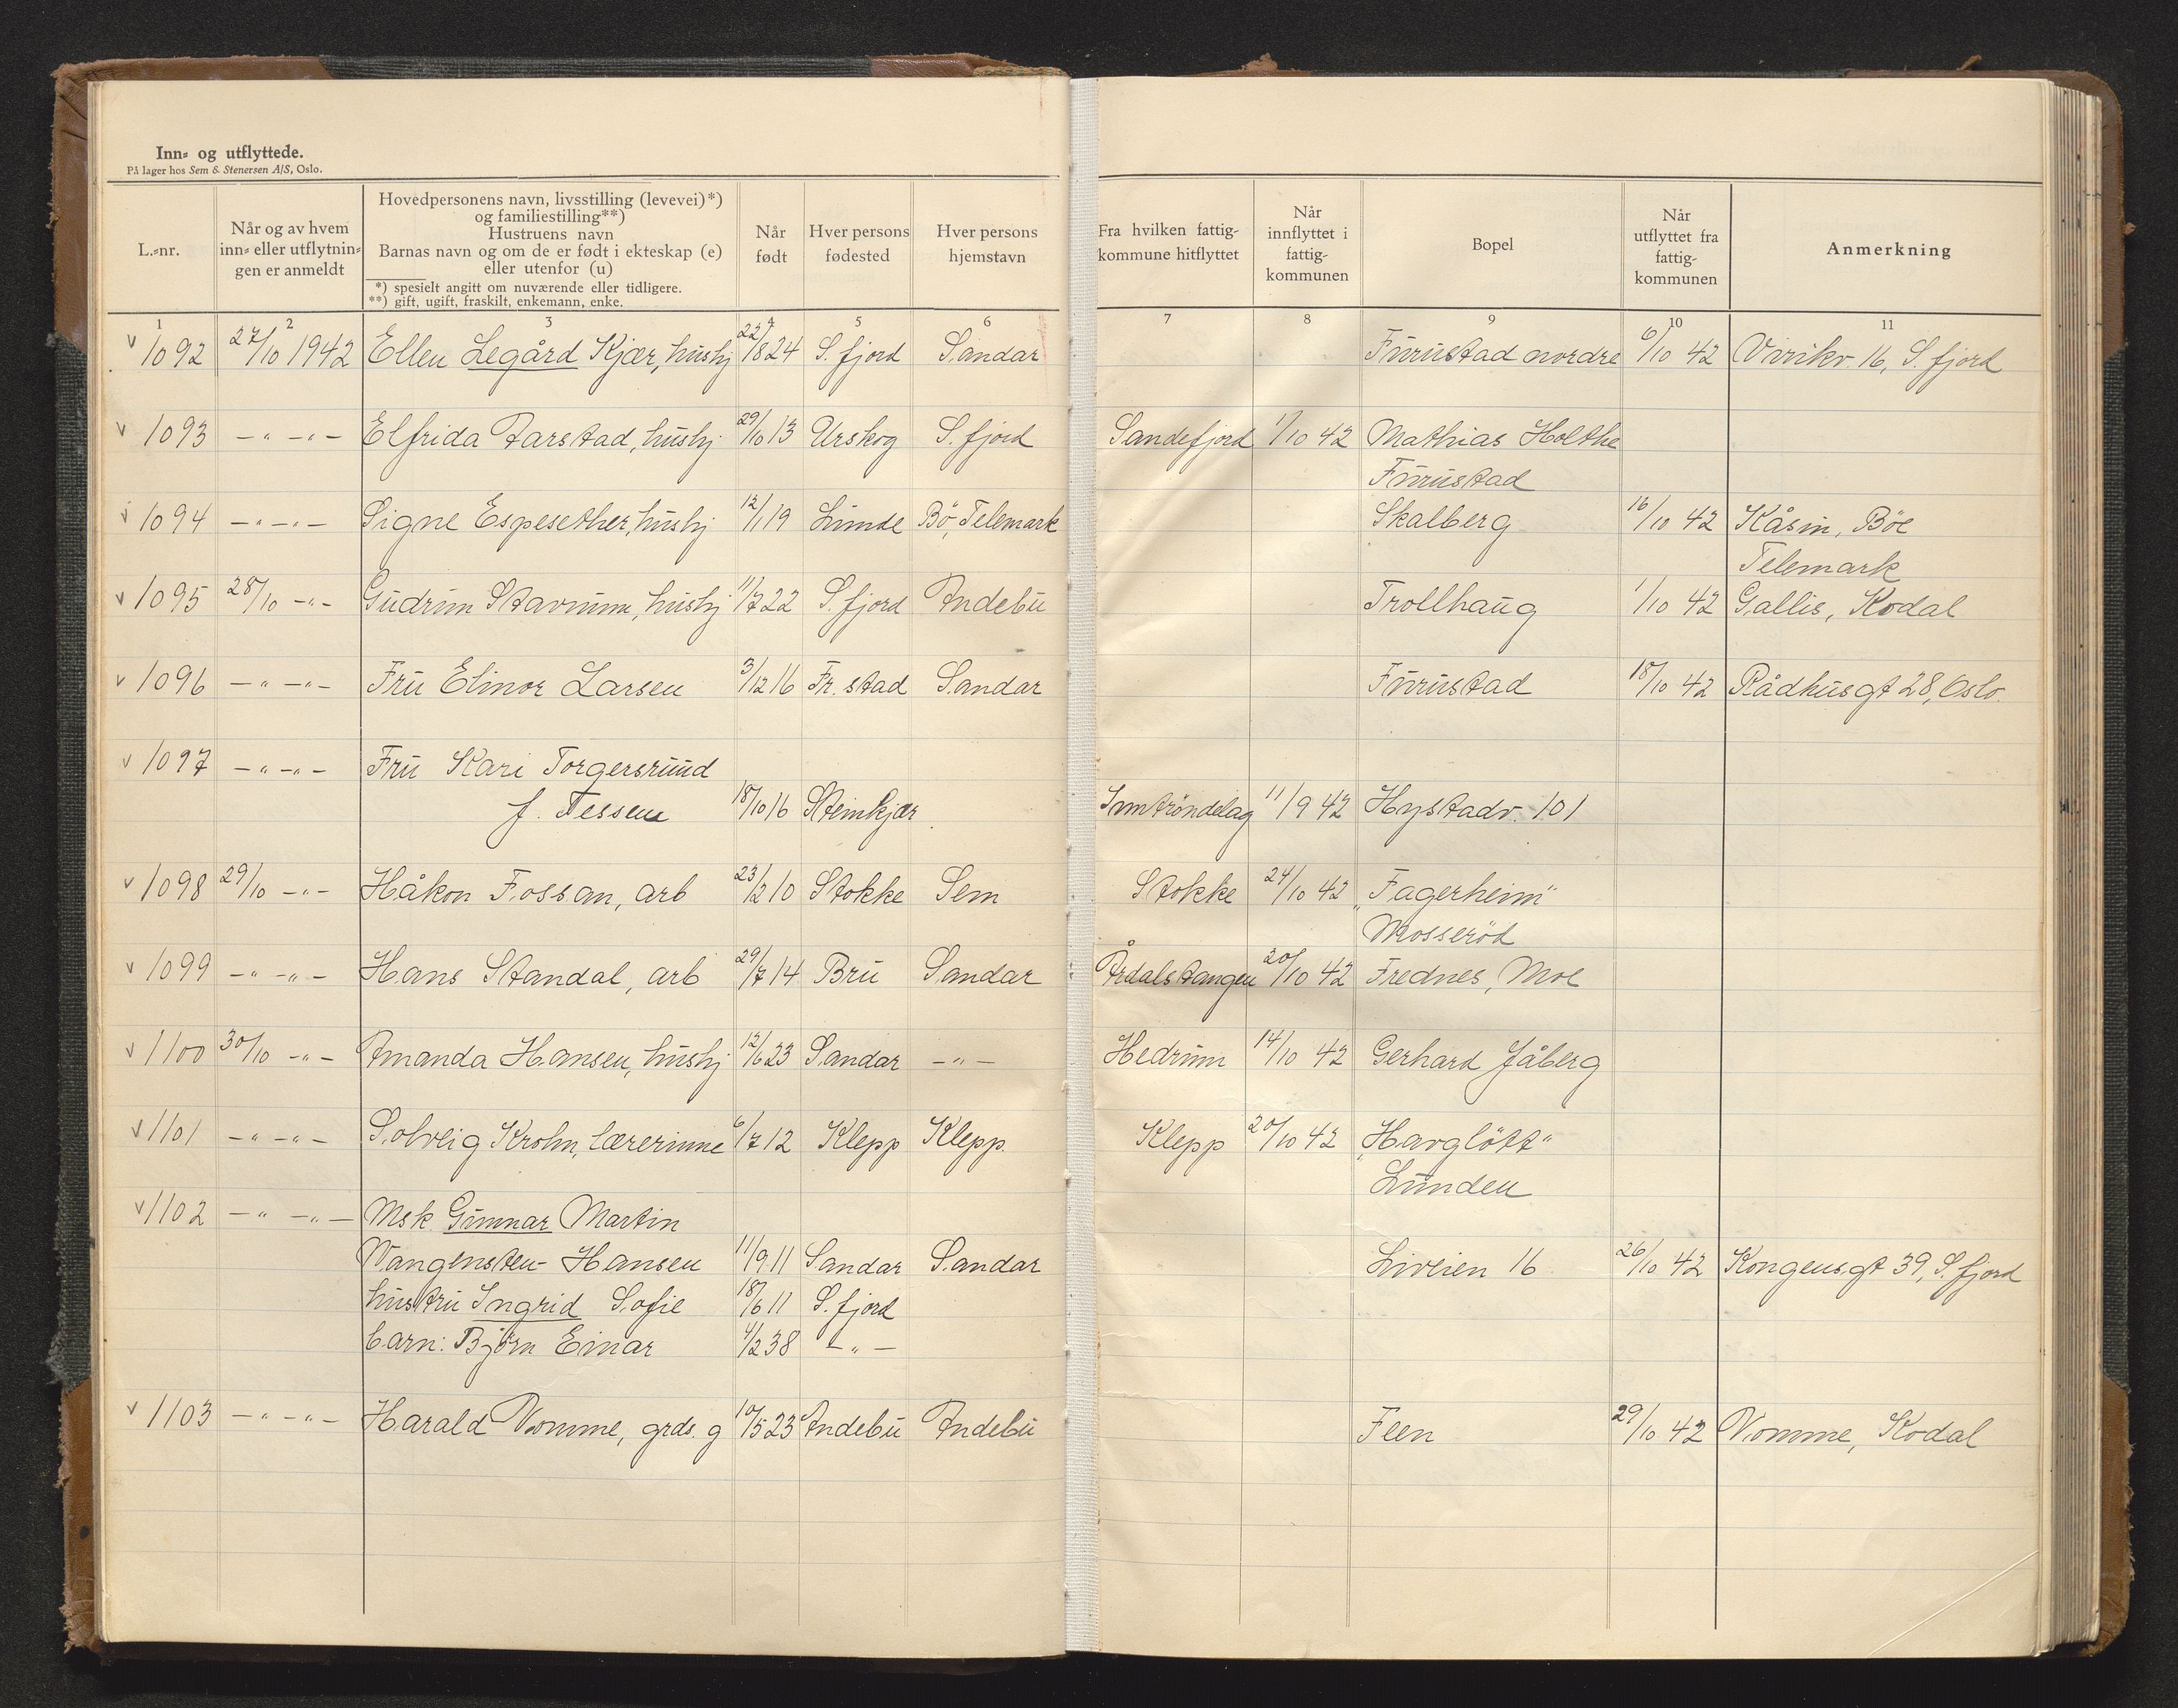 Inn- og utflyttede.
På lager hos Sem & Stenersen A/S, Oslo.
L.-nr.
Når og av hvem
inn- eller utflytnin-
gen er anmeldt
Hovedpersonens navn, livsstilling (levevei)*)
og familiestilling**)
Hustruens navn
Barnas navn og om de er født i ekteskap (e)
eller utenfor (u)
*) spesielt angitt om nuværende eller tidligere.
**) gift, ugift, fraskilt, enkemann, enke.
Når
født
Hver persons
fødested
Hver persons
hjemstavn
Fra hvilken fattig-
kommune hitflyttet
Når
innflyttet i
fattig-
kommunen
Bopel
Når
utflyttet fra
fattig-
kommunen
Anmerkning
1 2 3 4 5 6 7 8 9 10 11
v 1092 27/10 1942 Ellen Legård Kjær, hushj 22/8 24 S. fjord Sandar Furustad nordre 6/10 42 Virikv. 16, S. fjord
v 1093 -"- -"- Elfrida Aarstad, hushj. 29/10 13 Urskog S. fjord Sandefjord 1/10 42 Mathias Holthe
Furustad
v 1094 -"- -"- Signe Espesether, hushj 12/1 19 Lunde Bö, Telemark Skalberg 16/10 42 Kåsin, Böe
Telemark
v 1095 28/10 -"- Gudrun Stavnum, hushj 11/7 22 S. fjord Andebu Trollhaug 1/10 42 Gallis, Kodal
v 1096 -"- -"- Fru Elinor Larsen 3/12 16 Fr. stad Sandar Furustad 18/10 42 Rådhusgt 28, Oslo.
v 1097 -"- -"- Fru Kari Torgersruud
f. Tessem 18/10 16 Steinkjær Inntröndelag 11/9 42 Hystadv. 101
v 1098 29/10 -"- Håkon Fossan, arb 23/2 10 Stokke Sem Stokke 24/10 42 "Fagerheim"
Mosseröd
v 1099 -"- -"- Hans Standal, arb 29/7 14 Bru Sandar Årdalstangen 20/10 42 Frednes, Moe
v 1100 30/10 -"- Amanda Hansen, hushj 12/6 23 Sandar -"- Hedrum 14/10 42 Gerhard Jåberg
v 1101 -"- -"- Solveig Krohn, lærerinne 6/7 12 Klepp Klepp. Klepp 20/10 42 "Havglött"
Lunden
v 1102 -"- -"- Msk. Gunnar Martin
Wangensten-Hansen 11/9 11 Sandar Sandar Liveien 16 26/10 42 Kongensgt 39, S. fjord
hustru Ingrid Sofie 18/6 11 S. fjord
barn: Björn Einar 4/2 38 -"-
v 1103 -"- -"- Harald Vomme, grds. g 10/5 23 Andebu Andebu Feen 29/10 42 Vomme, Kodal